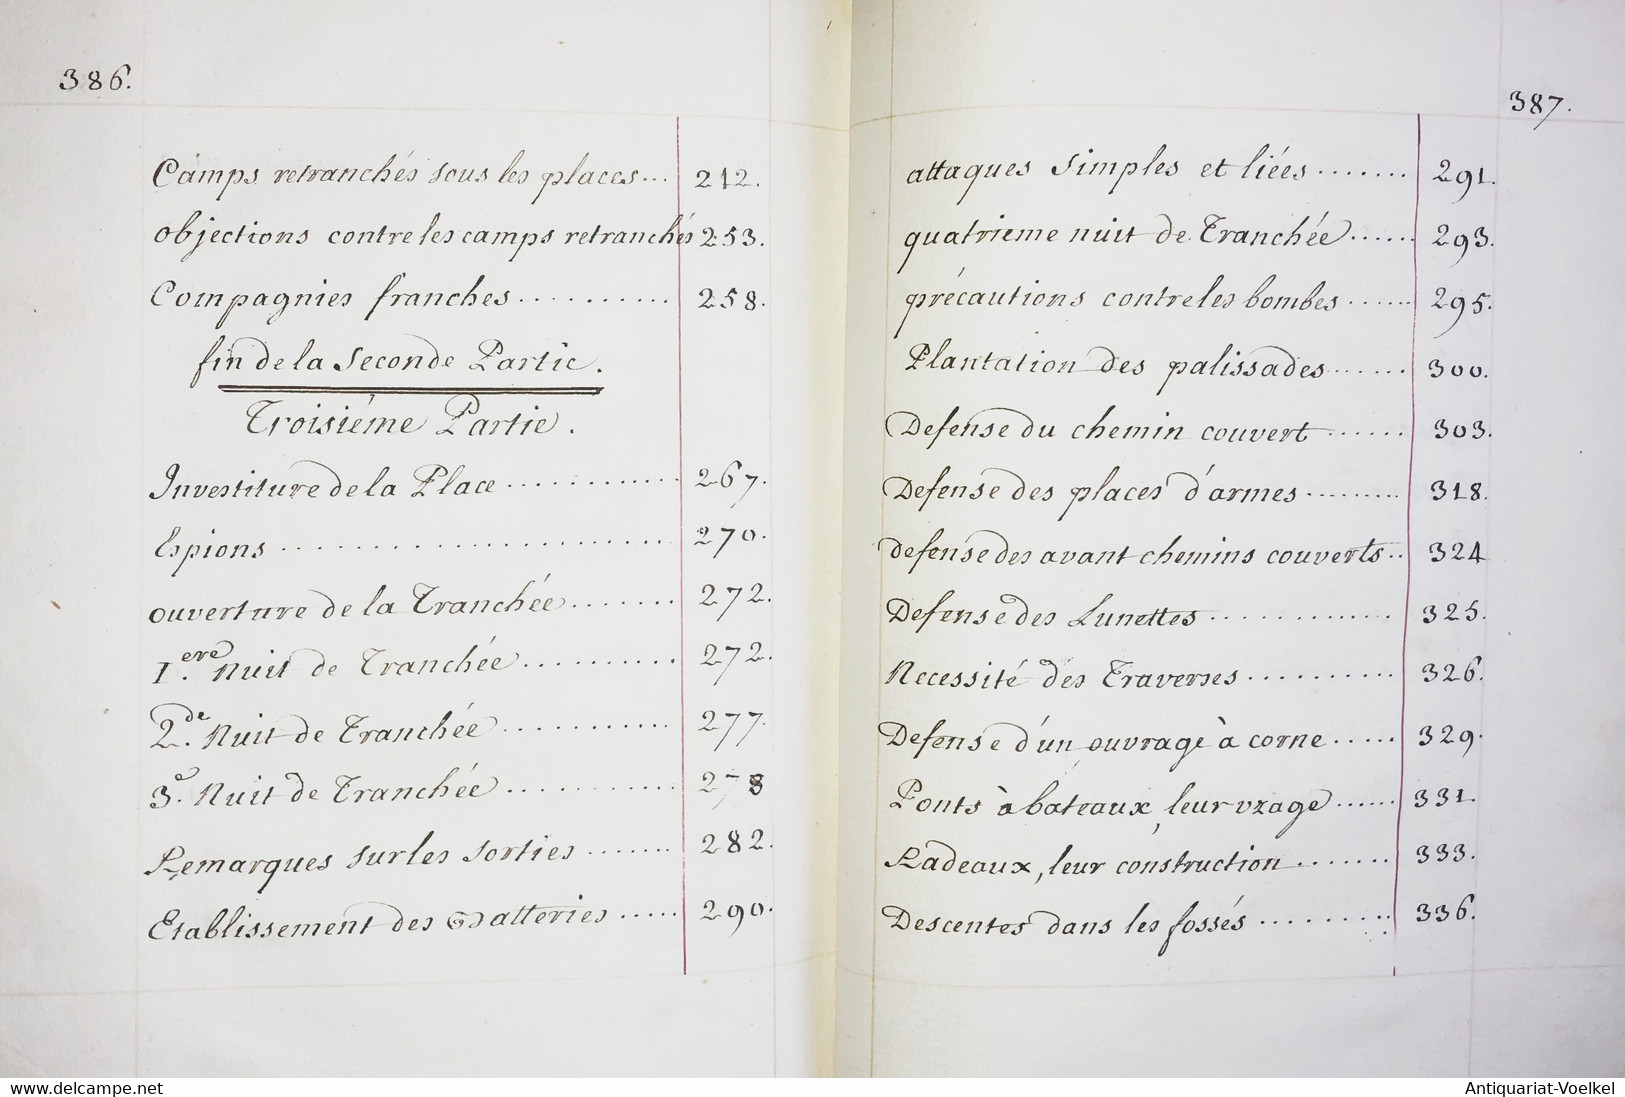 386.
Camps retranchés sous les places... 212.
objections contre les camps retranchés 253.
Compagnies franches........... 258.
fin de la Seconde Partie.
Troisiéme Partie.
Investiture de la Place ............ 267.
Espions ...................... 270.
ouverture de la Tranchée........ 272.
1.ere Nuit de Tranchée........... 272.
2.de Nuit de Tranchée ............ 277.
3.e Nuit de Tranchée ............ 278
Remarques sur les Sorties ....... 282.
Etablissement des Batteries ..... 290.
387.
attaques Simples et liées ....... 291.
quatrieme nuit de Tranchée...... 293.
précautions contre les bombes ...... 295.
Plantation des palissades...... 300.
Defense du chemin couvert ...... 303.
Defense des places d'armes ......... 318.
defense des avant chemins couverts.. 324
Defense des Lunettes ............. 325.
Necessité des Traverses .......... 326.
Defense d'un ouvrage à corne ..... 329.
Ponts à bateaux, leur uzage ...... 331.
Radeaux, leur construction ....... 333.
Descentes dans les fossés ......... 336.
www.delcampe.net
Antiquariat-Voelkel